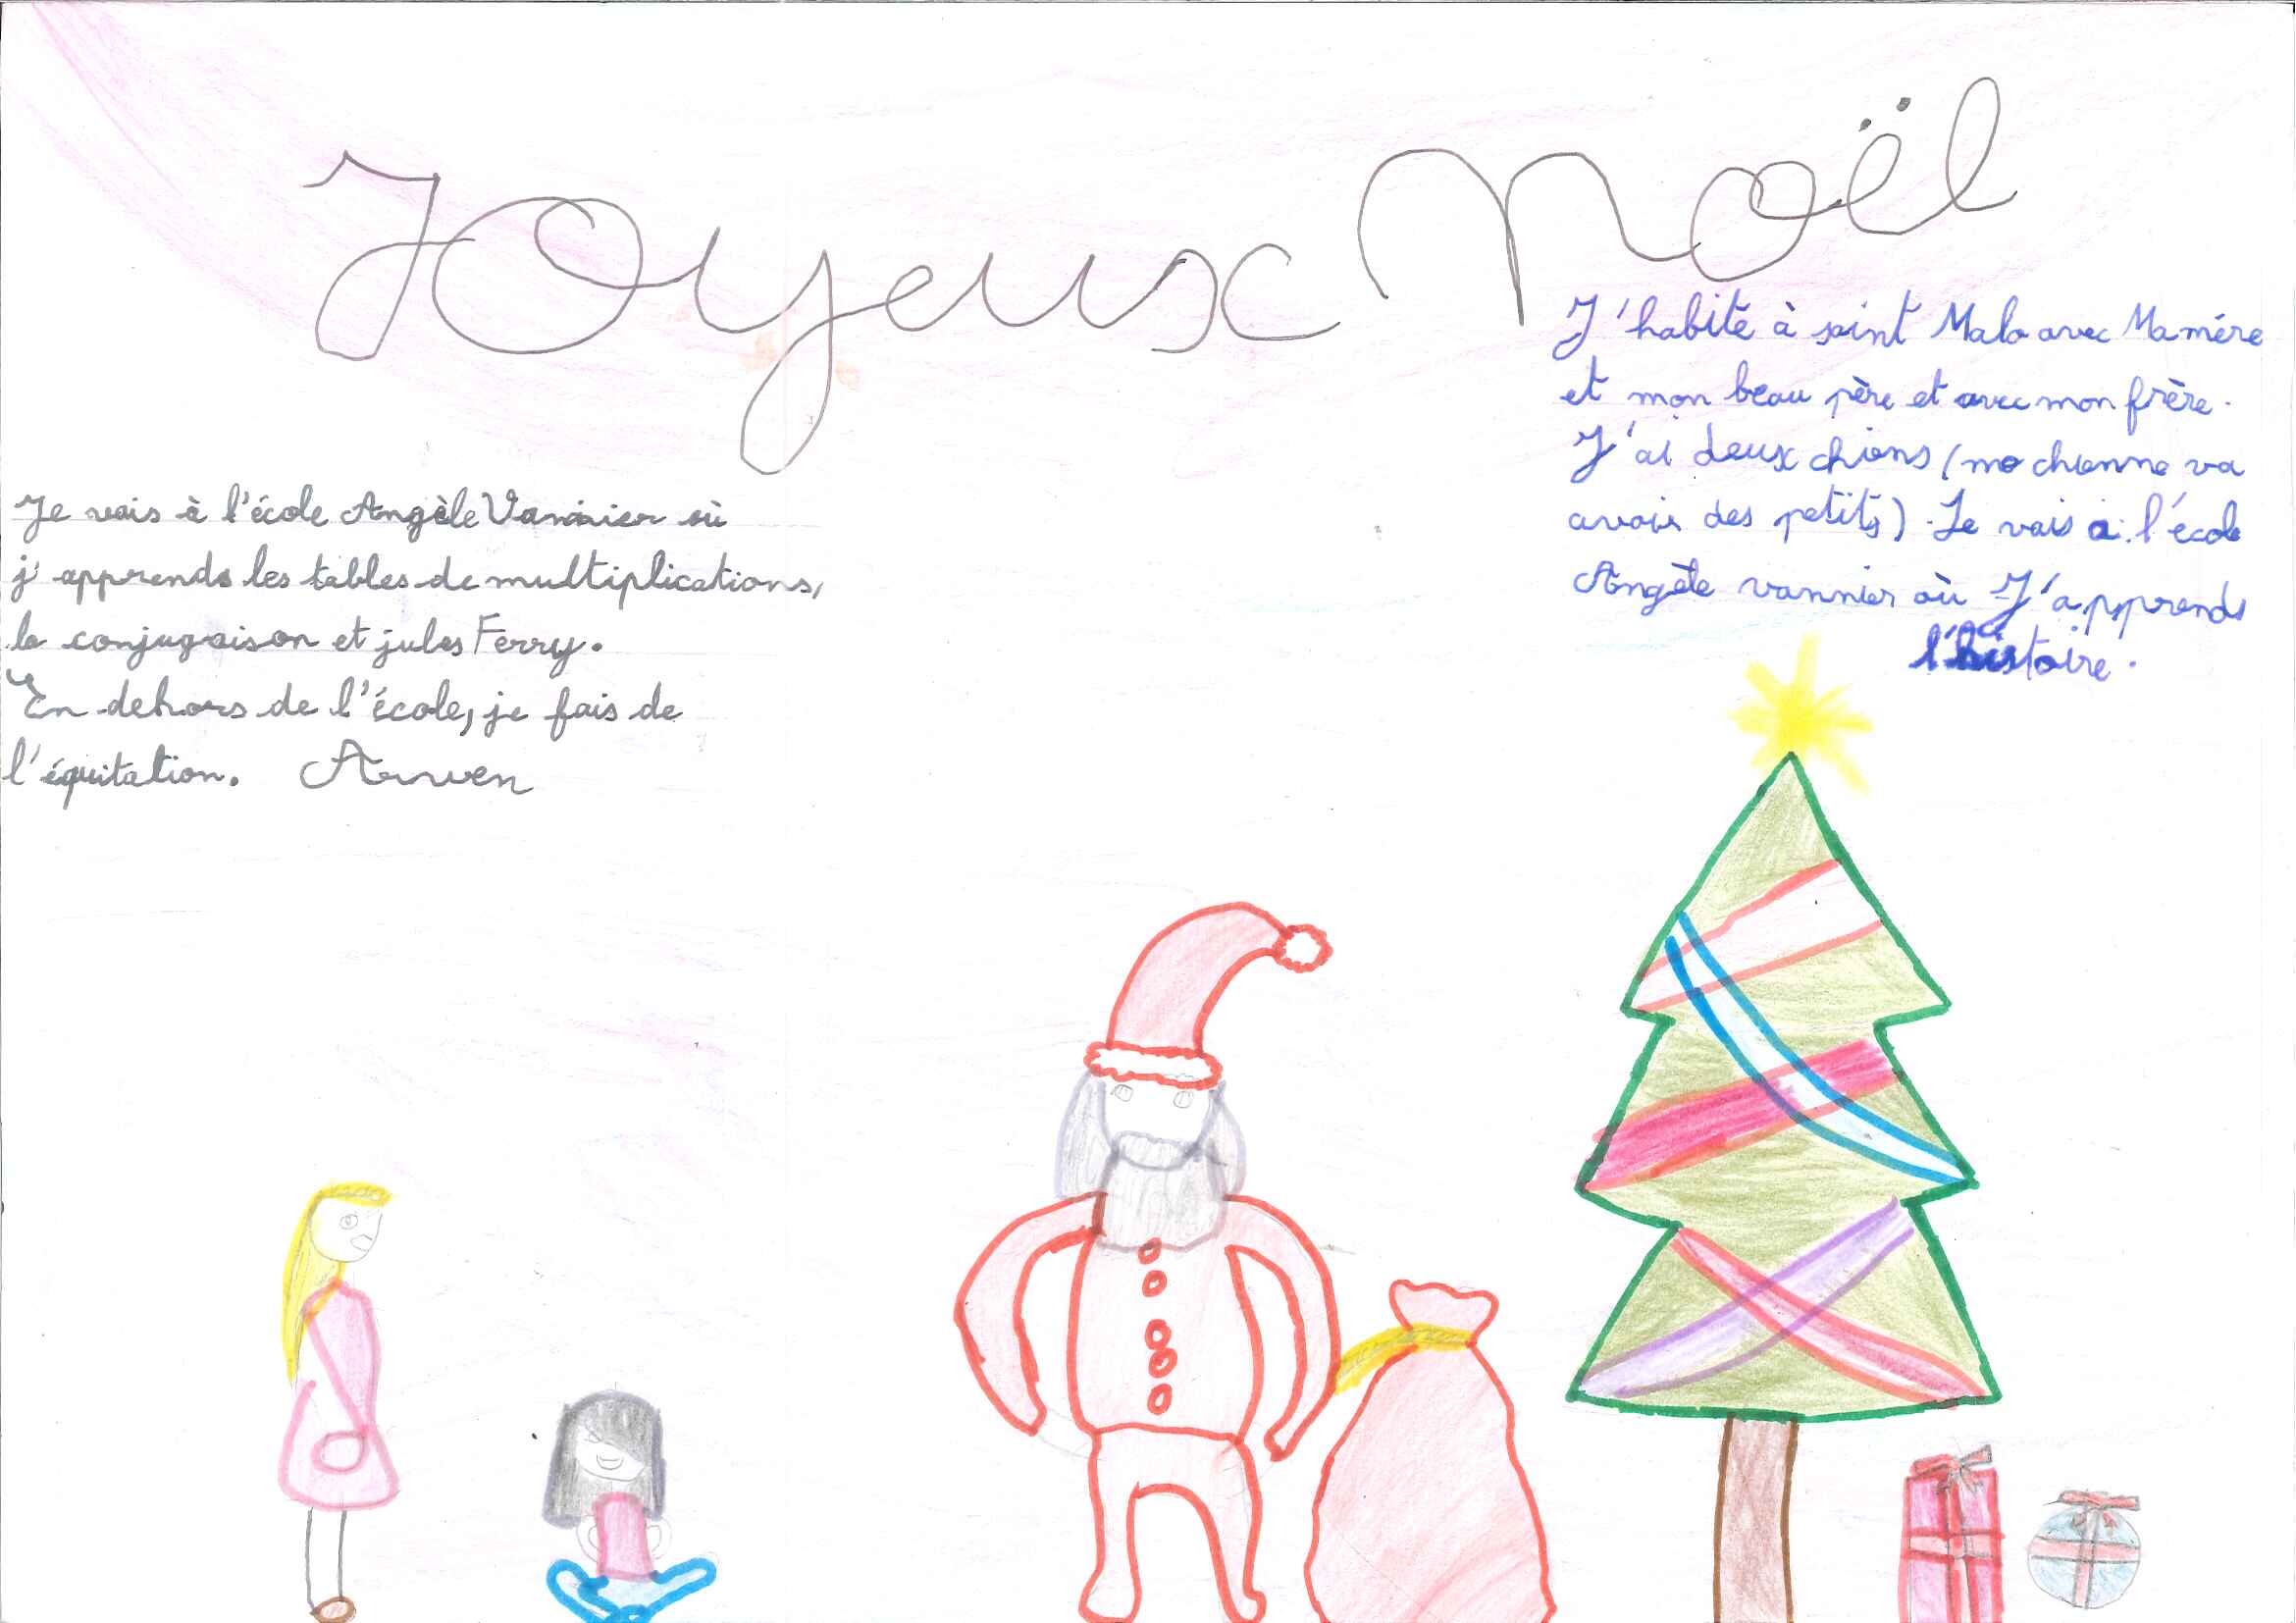 Joyeux Noël
Je vais à l'école Angèle Vannier où
j'apprends les tables de multiplications,
la conjugaison et jules Ferry.
En dehors de l'école, je fais de
l'équitation. Arwen
J'habite à saint Malo avec Mamére
et mon beau père et avec mon frère.
J'ai deux chiens (ma chienne va
avoir des petits). Je vais a l'école
Angèle vannier où J'apprends
l'histoire.